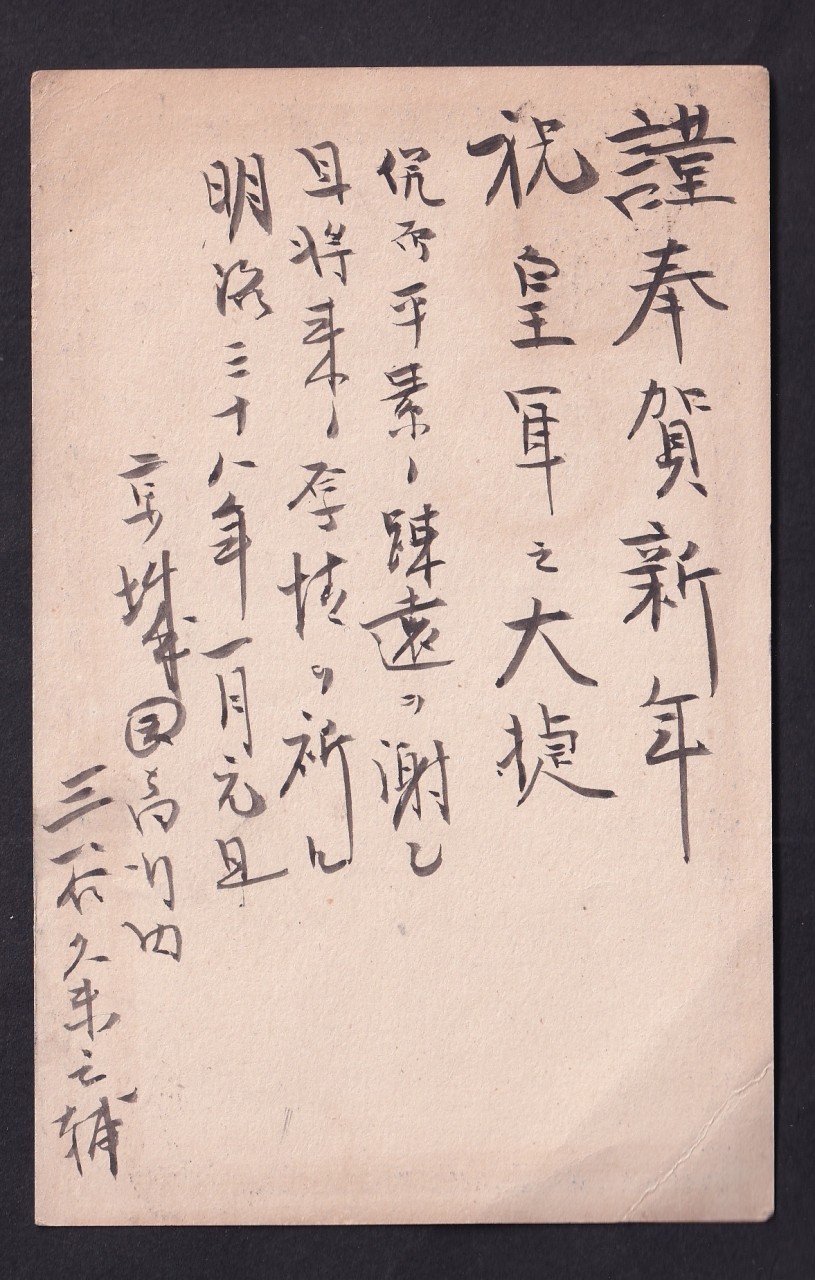 謹奉賀新年
祝皇軍之大捷
併而平素ノ踈遠ヲ謝シ
且将来ノ厚情ヲ祈ル
明治三十八年一月元旦
京城
三 久米之輔